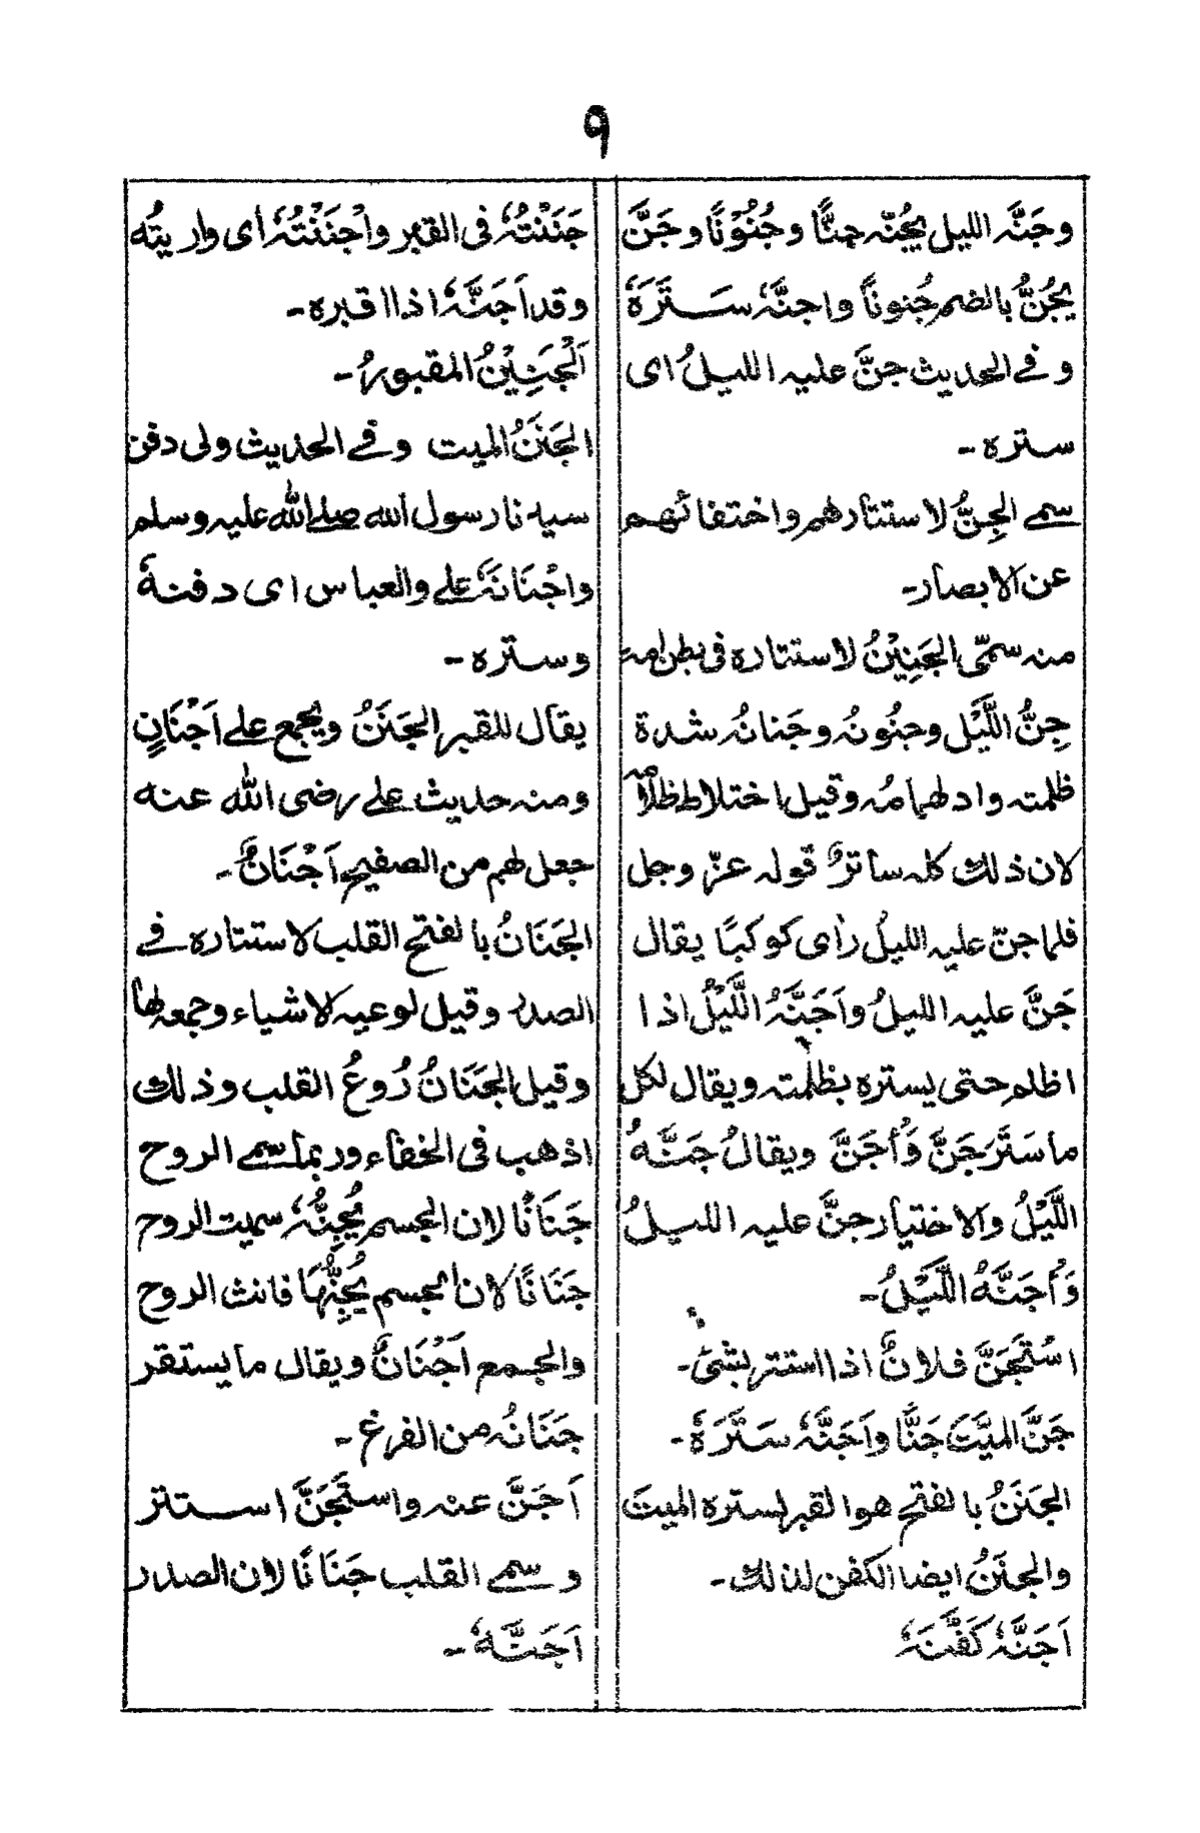 ۹
وجَنَّہ اللیل یَجُنّہ جنًّا وجُنُوْنًا وجَنَّ
یَجُنُّ بالضم جُنوناً واجنَّہٗ سَتَرَہٗ
وفے الحدیث جنَّ علیہ اللیلُ ای
سترہ۔
سمے الجِنُّ لاستتارھم واختفائھم
عن الابصار۔
منہ سمّی الجَنِیْنُ لاستتارہ فی بطن امہ
جِنُّ اللَّیْل وجنُونُہ وجَنانُہ شدۃ
ظلمتہ وادلھمامُہ وقیل اختلاط ظلامہ
لان ذلك کلہ ساترٌ قولہ عزّ وجل
فلما جنّ علیہ اللیلُ رأی کوکبًا یقال
جَنَّ علیہ اللیلُ واَجَنَّہُ اللَّیْلُ اذا
اظلم حتی یسترہ بظلمتہ ویقال لکل
ما سَتَرَ جَنَّ وَأجَنَّ ویقالُ جَنَّہُ
اللَّیْلُ والاختیار جنَّ علیہ اللیلُ
وَأجَنَّہُ اللَّیْلُ۔
اسْتَجَنَّ فلانٌ اذا استتر بشئ۔
جَنَّ المیَّتَ جَنًّا واَجَنَّہٗ سَتَرَہٗ۔
الجَنَنُ بالفتح ھوالقبر لسترہ المیتَ
والجنَنُ ایضا الکفن لذلك۔
اَجَنَّہٗ کَفَّنَہٗ
جَنَنْتُہٗ فی القبر واَجْنَنْتُہٗ ای واریتُہ
وقد اَجَنَّہٗ اذا اقبرہ۔
اَلْجَنِیْنُ المقبورُ۔
الجَنَنُ المیت وفے الحدیث ولی دفن
سیدنا رسول اللہ صلے اللہ علیہ وسلم
واِجْنَانَہٗ علی والعباس ای دفنہٗ
وسترہ۔
یقال للقبر الجَنَنُ ویجمع علے اَجْنَانٍ
ومنہ حدیث علی رضی اللہ عنہ
جعل لھم من الصفیح اَجْنَانٌ۔
الجَنَانُ بالفتح القلب لاستتارہ فے
الصدر وقیل لوعیہ الاشیاء وجمعہ لھا
وقیل الجَنَانُ رُوعُ القلب وذلك
اذھب فی الخفاء وربما سمے الروح
جَنَانًا لان الجسم یُجِنُّہٗ سمیت الروح
جَنَانًا لان الجسم یُجِنُّھَا فانث الروح
والجمع اَجْنَانٌ ویقال ما یستقر
جَنَانُہ من الفزع۔
اَجَنَّ عنہ واستَجَنَّ استتر
وسمے القلب جَنَانًا لان الصدر
اَجَنَّہٗ۔